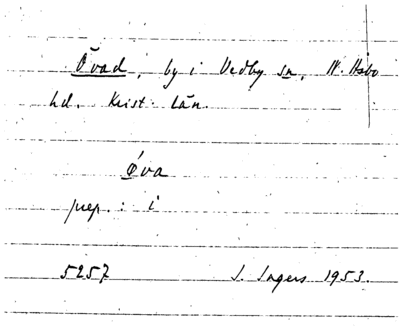 Övad, by i Vedby sn, N. Åsbo
hd. Krist. län.
öva
prep.: i
5257 J. Ingers 1953.